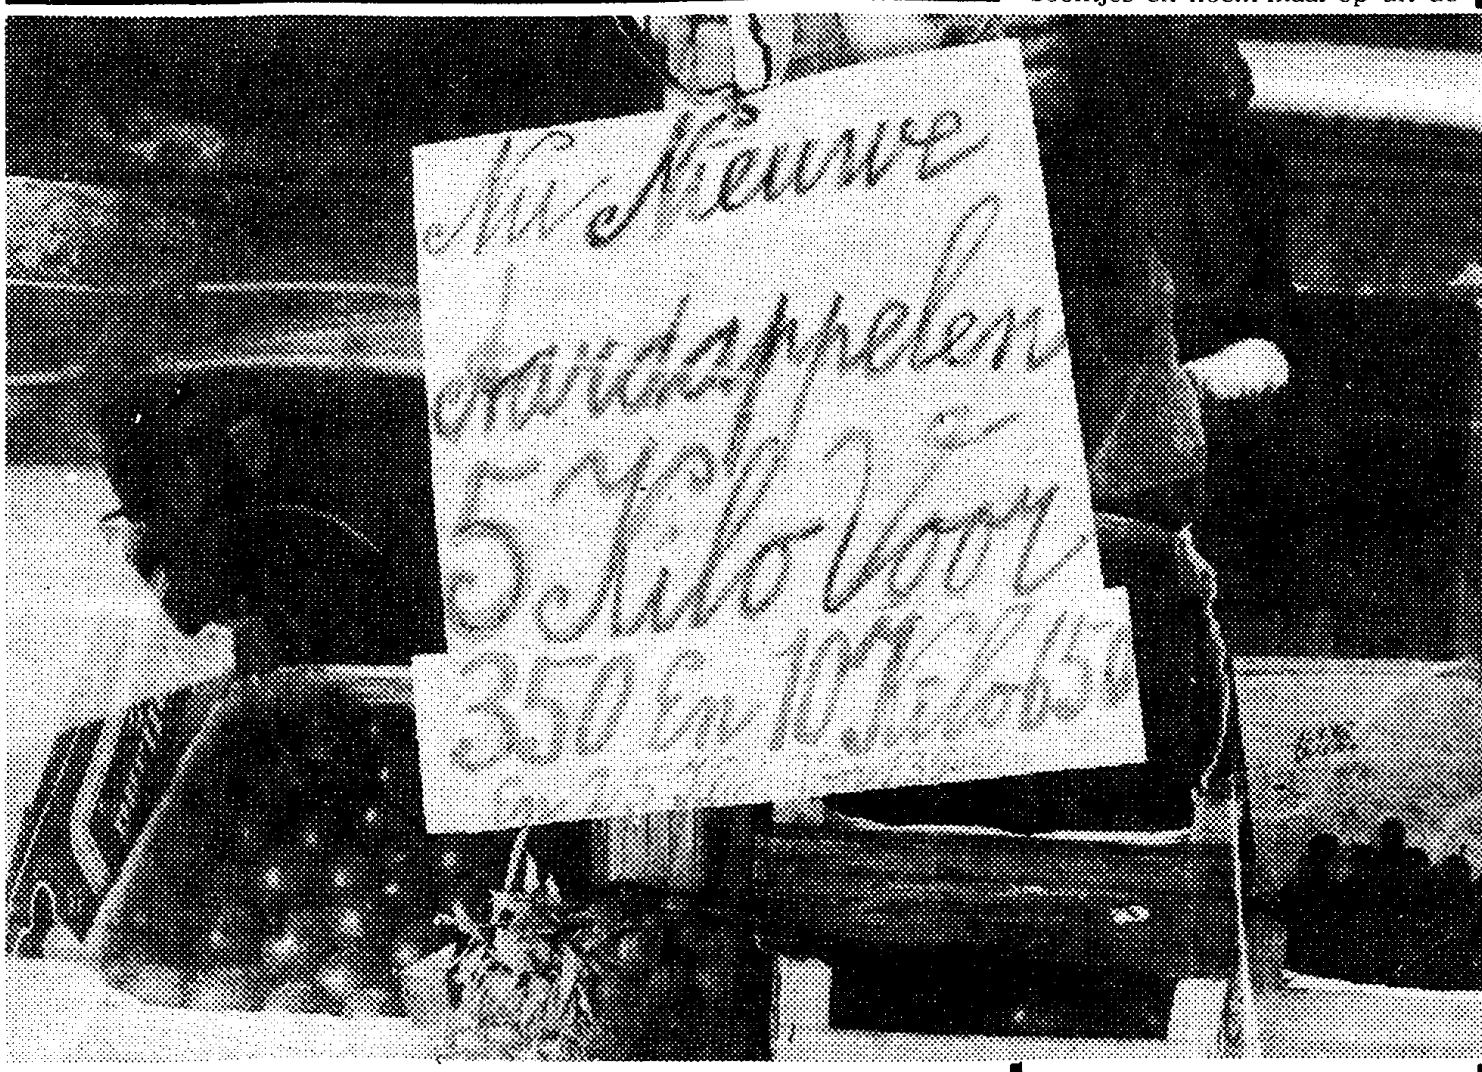 Nu Nieuwe
Aardappelen
5 Kilo Voor
350 En 10 Kilo 650